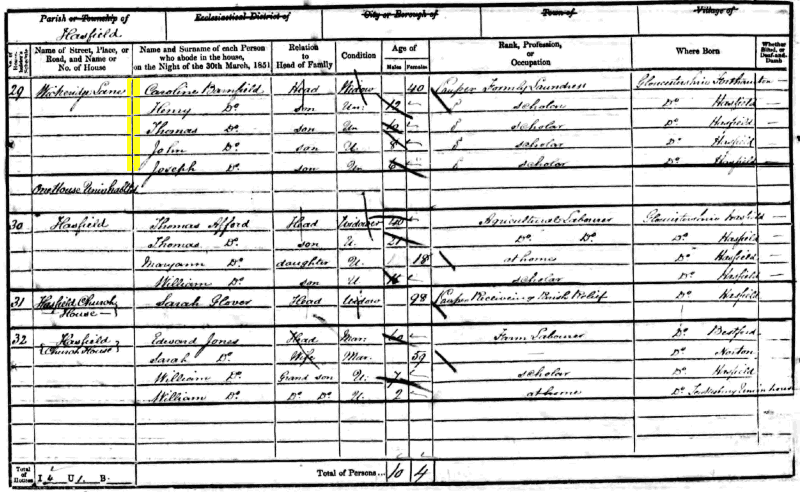 Parish or Township of Ecclesiastical District of City or Borough of Town of Village of
Hasfield
Name of Street, Place, or Road, and Name or No. of House
Name and Surname of each Person who abode in the house, on the Night of the 30th March, 1851
Relation to Head of Family
Condition
Age of
Males Females
Rank, Profession, or Occupation
Where Born
Whether Blind, or Deaf-and-Dumb
29 Caroline Head Widow 40 Pauper Gloucestershire
Henry Do son Un 12 scholar Do Hasfield
Thomas Do son Un 10 scholar Do Hasfield
John Do son U 8 scholar Do Hasfield
Joseph Do son Un 6 scholar Do Hasfield
One House Uninhabited
30 Hasfield Thomas Head Widower Agricultural Labourer Gloucestershire Hasfield
Thomas Do son U. 21 Do Do Do Hasfield
Maryann Do daughter U. 18 at home Do Hasfield
William Do son U scholar Do Hasfield
31 Hasfield Church House Sarah Glover Head Widow 98 Pauper Receiving Parish Relief Do Hasfield
32 Hasfield Church House Edward Jones Head Mar. 60 Farm Labourer Do
Sarah Do Wife Mar. 59 Do Norton
William Do Grand son U. 7 scholar Do Hasfield
William Do Do Do U. 2 at home Do
Total of Houses I 4 U 1 B Total of Persons... 10 4